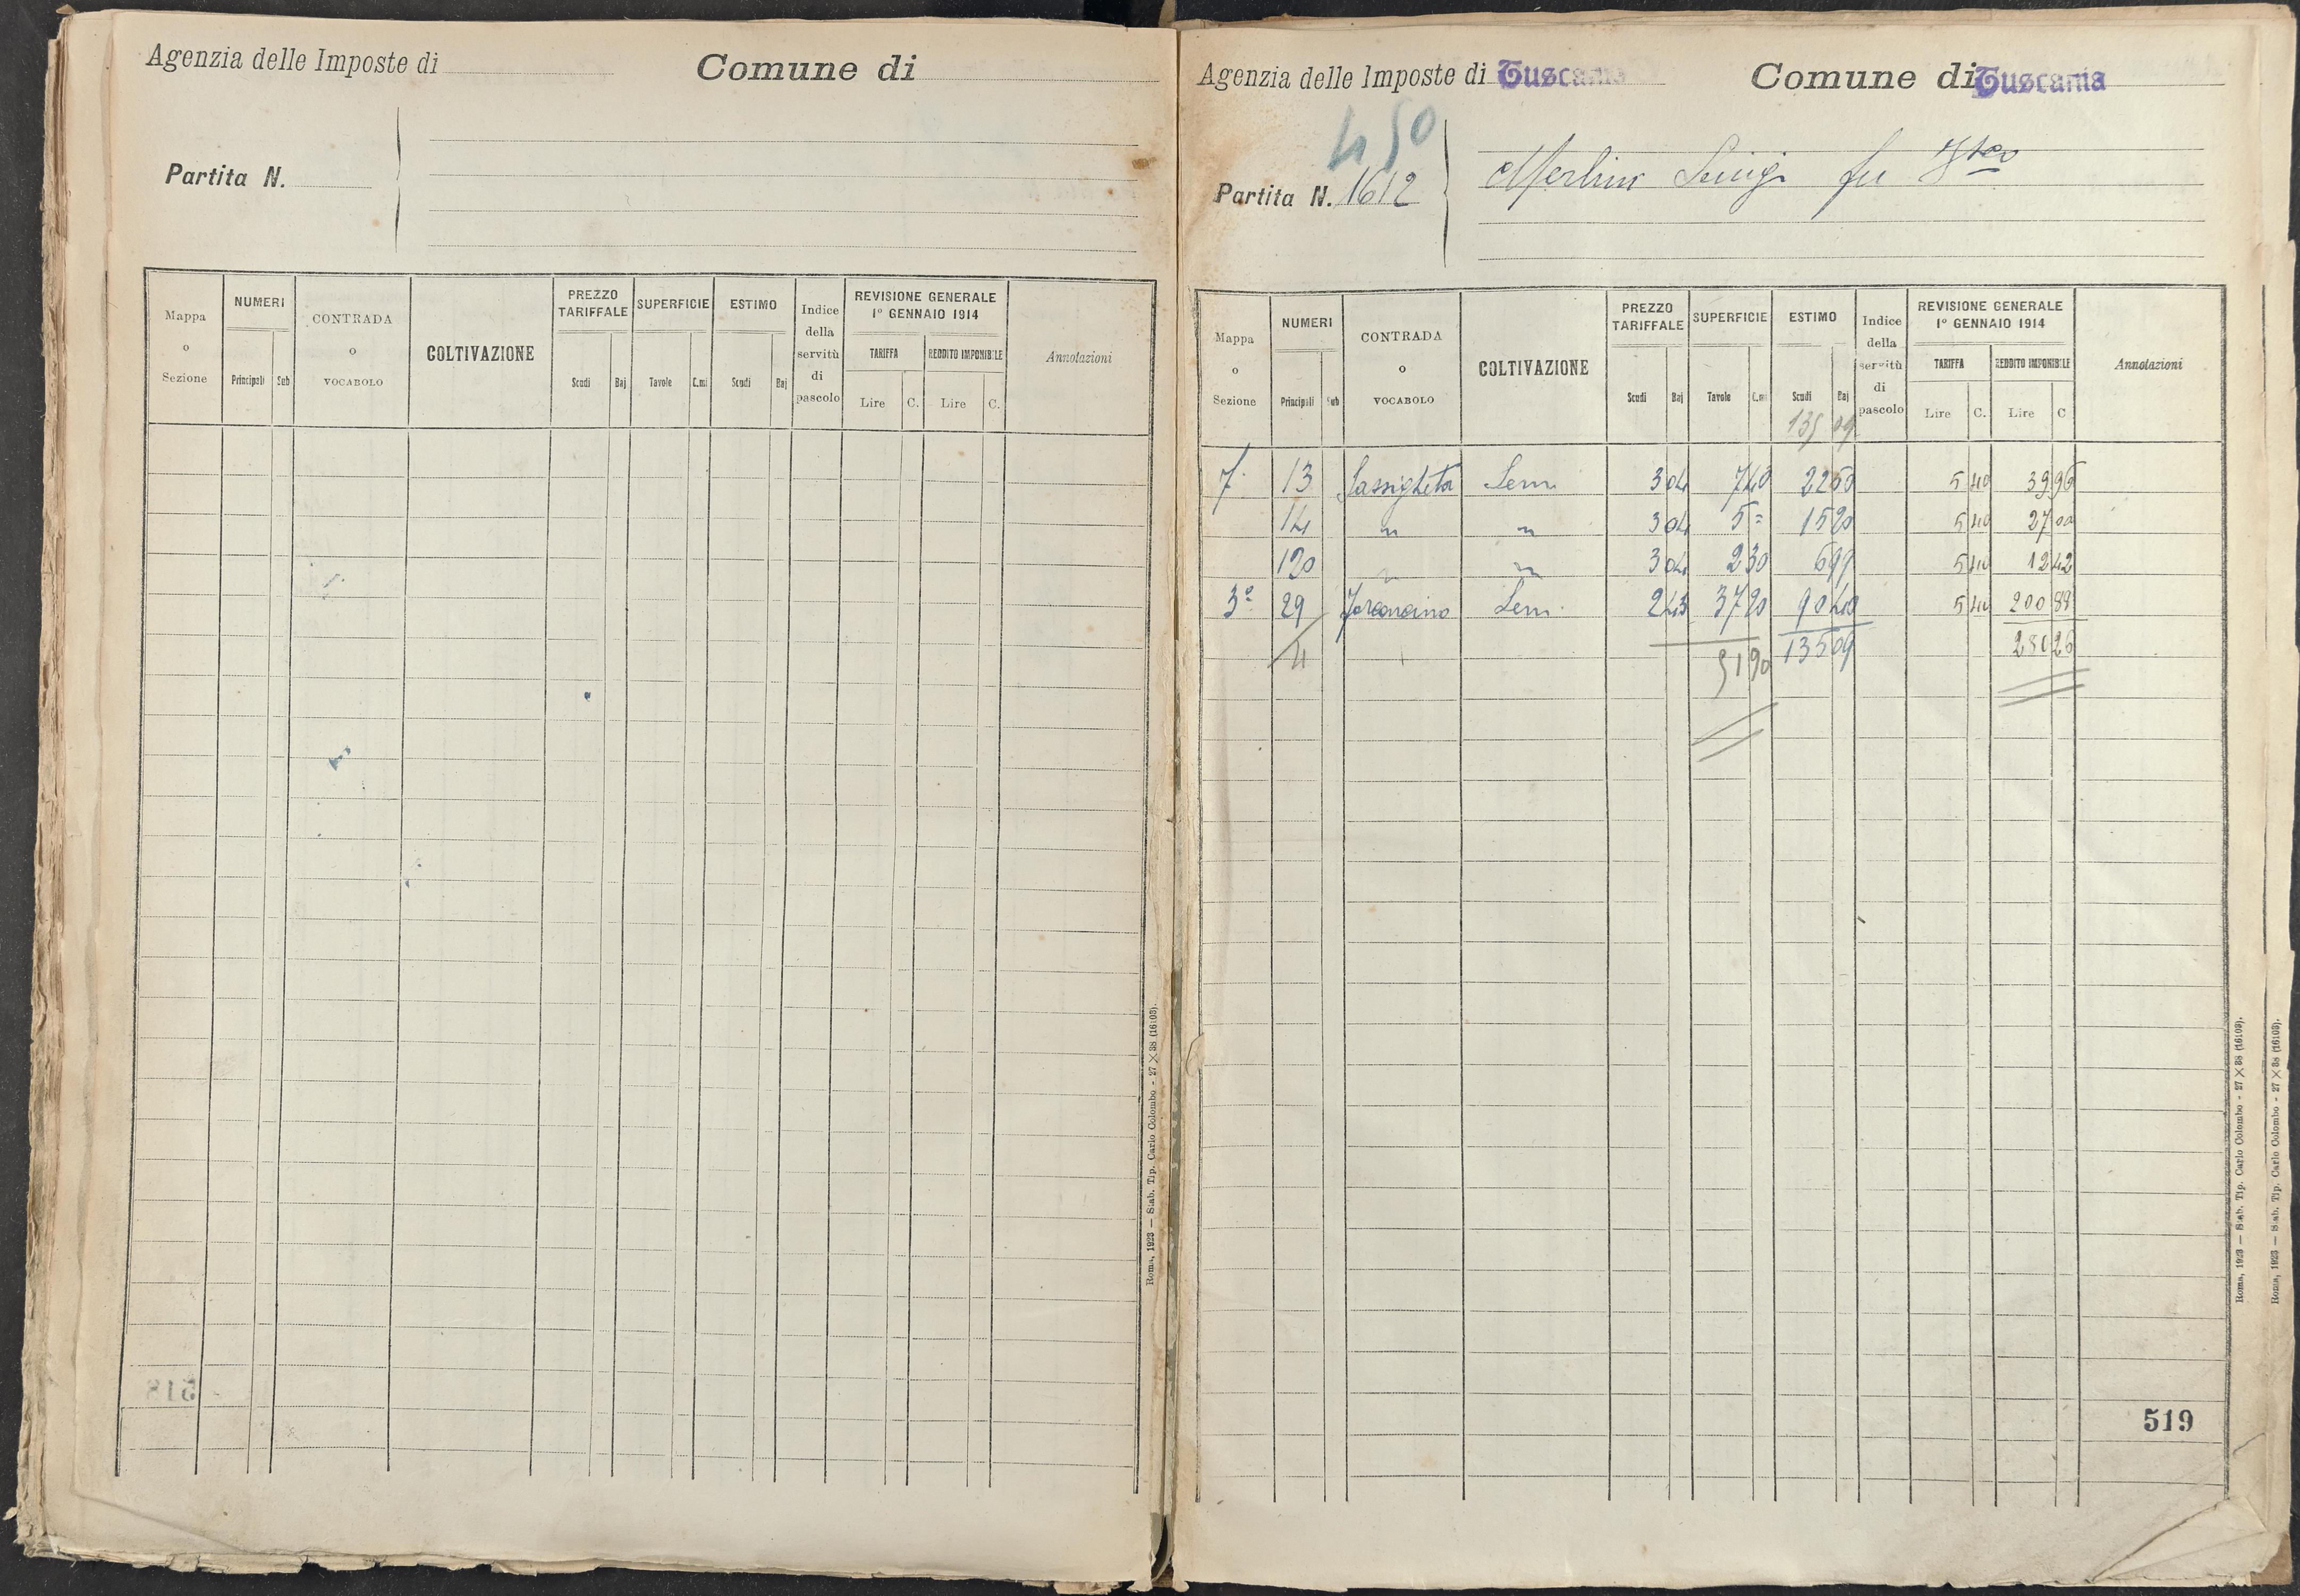 Agenzia delle Imposte di
Comune di
Partita N.
Mappa o Sezione
NUMERI
Principali Sub
CONTRADA o VOCABOLO
COLTIVAZIONE
PREZZO TARIFFALE
Scudi Baj
SUPERFICIE
Tavole C.mi
ESTIMO
Scudi Baj
Indice della servitù di pascolo
REVISIONE GENERALE
1° GENNAIO 1914
TARIFFA
Lire C.
REDDITO IMPONIBILE
Lire C.
Annotazioni
518
Roma, 1923 — Stab. Tip. Carlo Colombo - 27 × 38 (16103).
Agenzia delle Imposte di Tuscania
Comune di Tuscania
450
Partita N. 1612
Merlini Luigi fu
Mappa o Sezione
NUMERI
Principali Sub
CONTRADA o VOCABOLO
COLTIVAZIONE
PREZZO TARIFFALE
Scudi Baj
SUPERFICIE
Tavole C.mi
ESTIMO
Scudi Baj
Indice della servitù di pascolo
REVISIONE GENERALE
1° GENNAIO 1914
TARIFFA
Lire C.
REDDITO IMPONIBILE
Lire C
Annotazioni
135 09
7. 13 Sem. 3 04 7 40 22 50 5 40 39 96
14 " " 3 04 5 = 15 20 5 40 27 00
120 " " 3 04 2 30 6 99 5 40 12 42
3° 29 Sem. 2 43 37 20 90 40 5 40 200 88
4 51 90 135 09 280 26
519
Roma, 1923 — Stab. Tip. Carlo Colombo - 27 × 38 (16103).
Roma, 1923 — Stab. Tip. Carlo Colombo - 27 × 38 (16103).